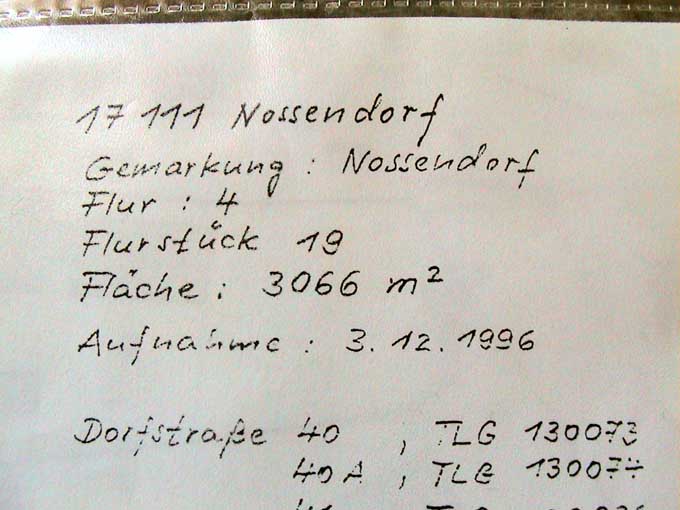 17 111 Nossendorf
Gemarkung : Nossendorf
Flur : 4
Flurstück 19
Fläche : 3066 m²
Aufnahme : 3.12.1996
Dorfstraße 40 , TLG 130073
40 A , TLG 130074